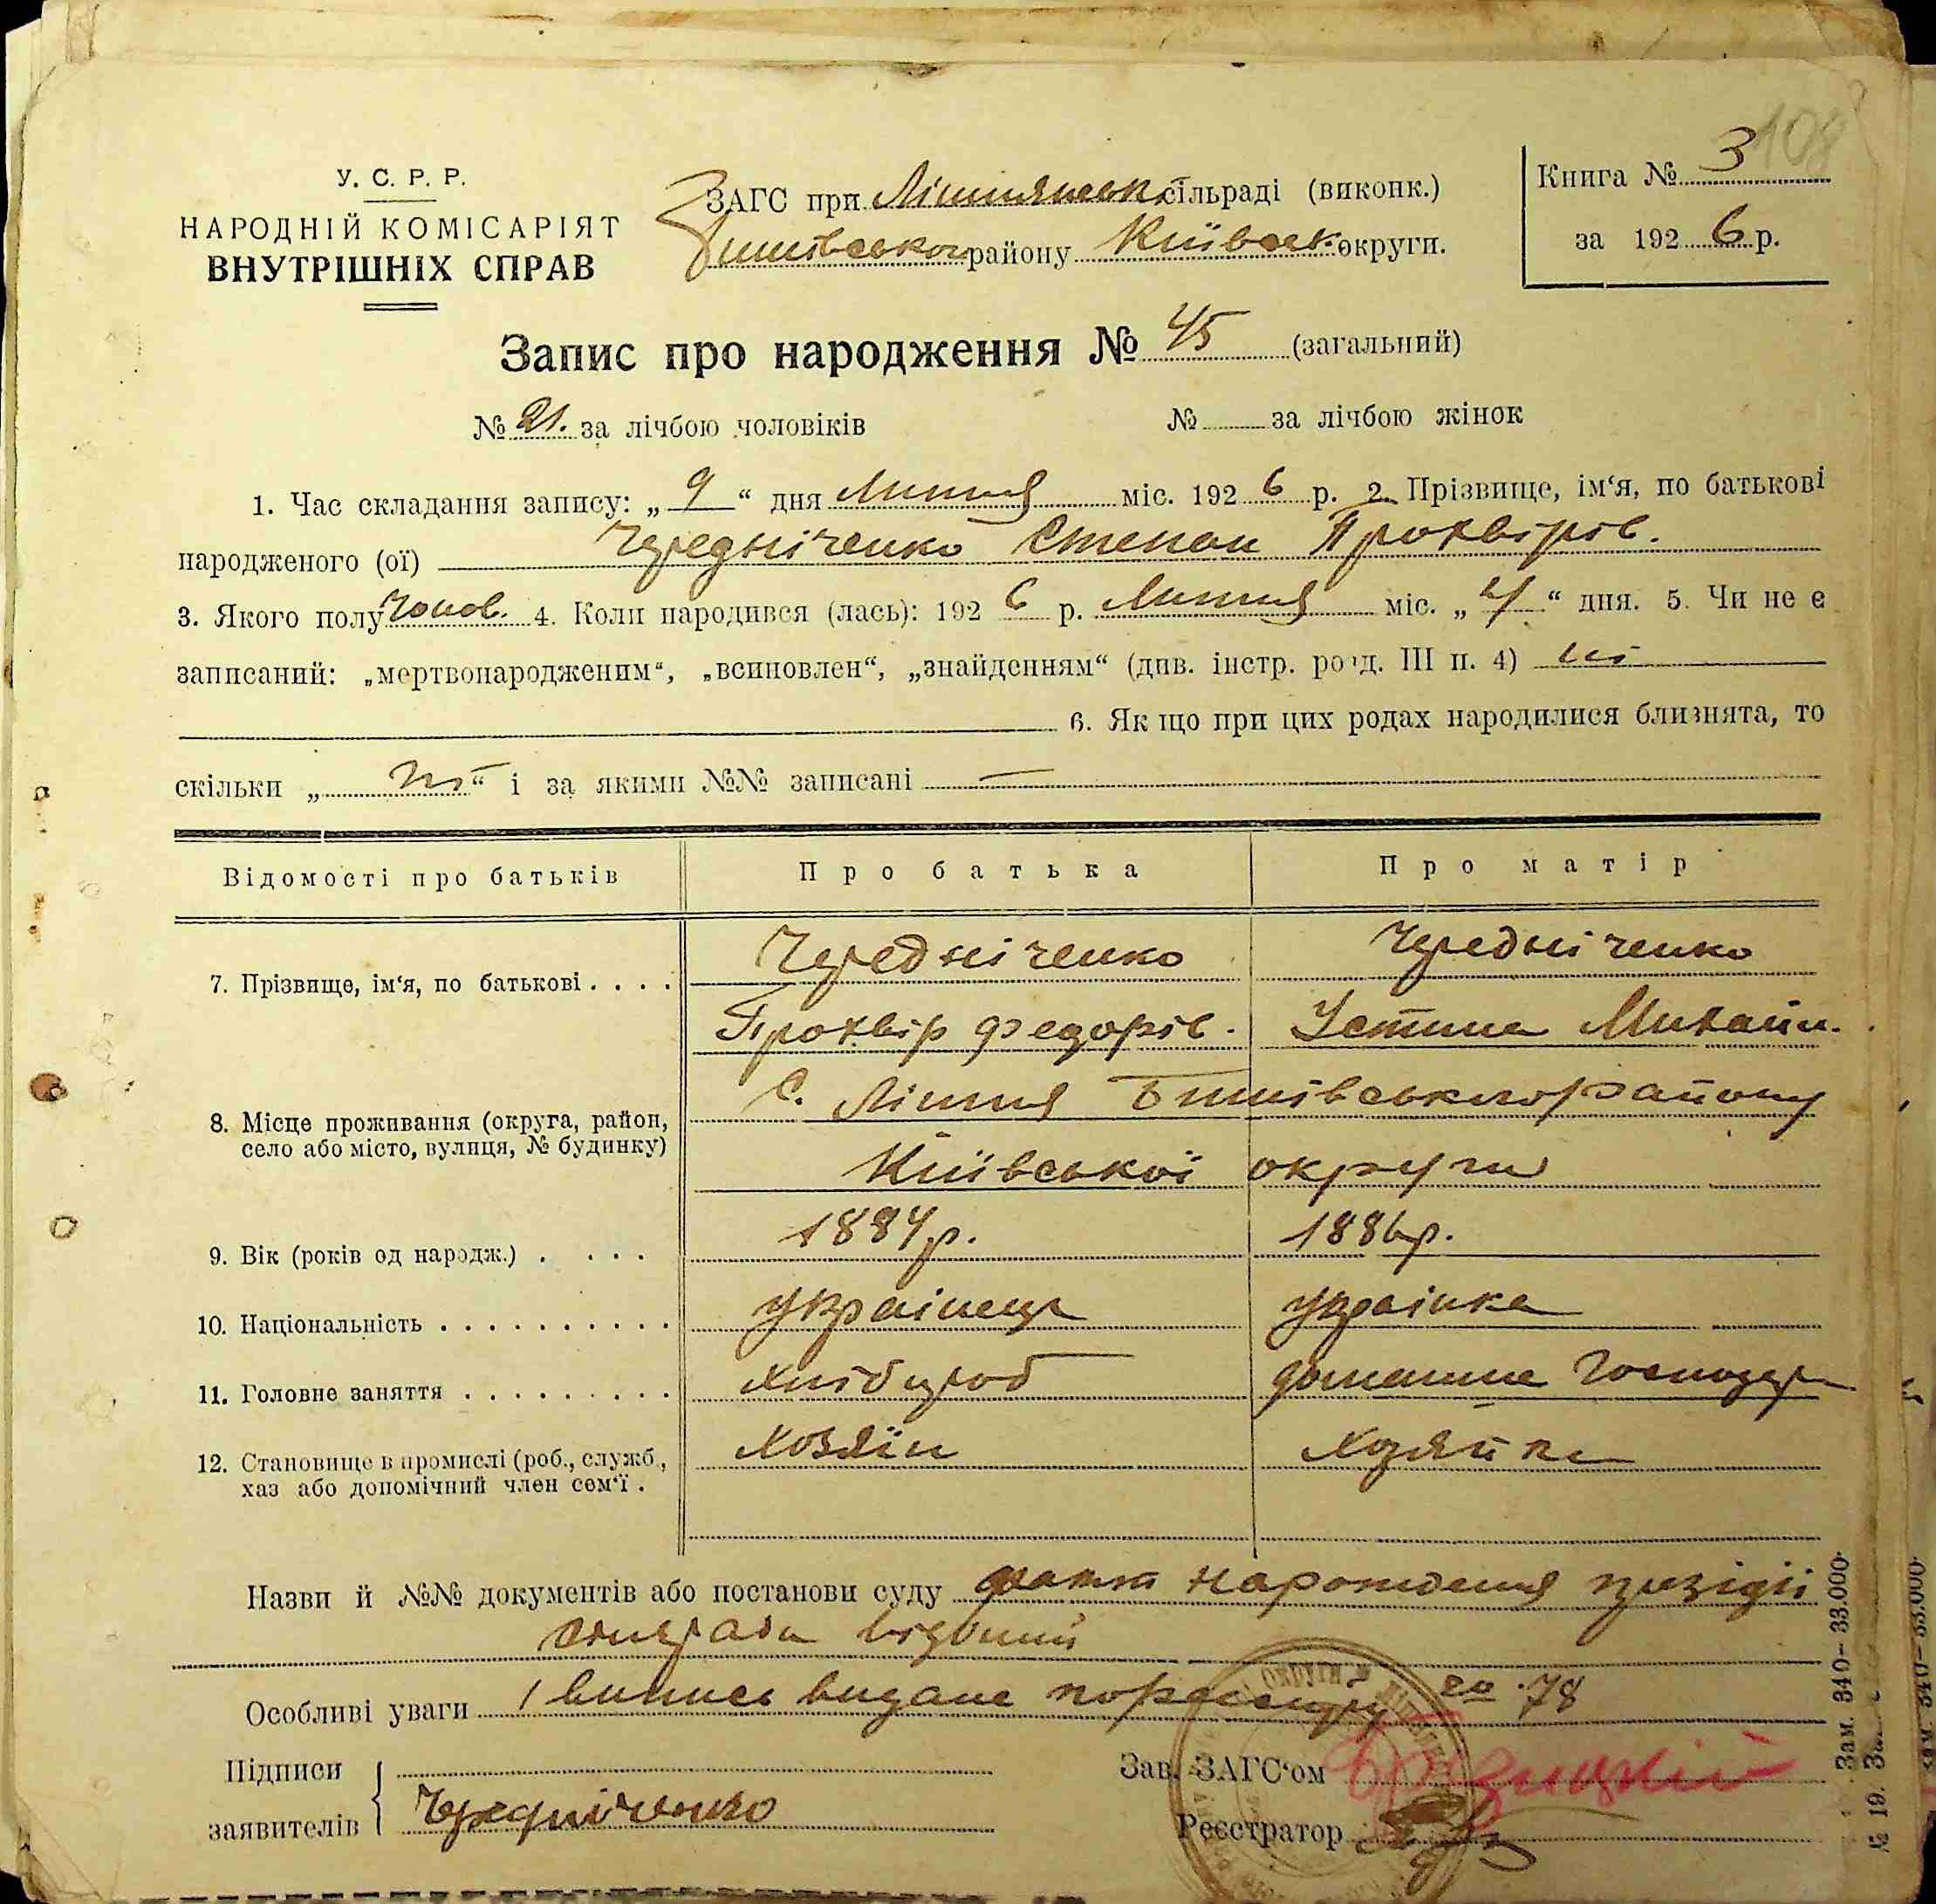 108
У. С. Р. Р.
НАРОДНІЙ КОМІСАРІЯТ
ВНУТРІШНІХ СПРАВ
ЗАГС при Ліпнянськ. сільраді (виконк.)
району Київськ. округи.
Книга № 3
за 1926 р.
Запис про народження № 45 (загальний)
№ 21. за лічбою чоловіків № за лічбою жінок
1. Час складання запису: „ 9 “ дня Липня міс. 1926 р. 2. Прізвище, ім‘я, по батькові
народженого (ої) Чередніченко Степан Прохвірів.
3. Якого полу чолов. 4. Коли народився (лась): 1926 р. Липня міс. „ 4 “ дня. 5. Чи не є
записаний: „мертвонародженим“, „всиновлен“, „знайденням“ (див. інстр. розд. III п. 4) ні
6. Якщо при цих родах народилися близнята, то
скільки „ ні “ і за якими №№ записані —
Відомості про батьків Про батька Про матір
7. Прізвище, ім‘я, по батькові . . . . Чередніченко Чередніченко
Прохвір Федорів. Устина Михайл.
8. Місце проживання (округа, район, село або місто, вулиця, № будинку) С. Ліпня Бишівського району
Київської округи
9. Вік (років од народж.) . . . . 1884 р. 1886 р.
10. Національність . . . . . . . . . . українець українка
11. Головне заняття . . . . . . . . . хлібороб домашнє господар
12. Становище в промислі (роб., служб., хаз або допомічний член сем‘ї . хозяїн хозяйка
Назви й №№ документів або постанови суду факт нарождения президії
сільради відомий
Особливі уваги 1 випись видана по 20 · 78
Підписи
заявителів Чередніченко
Зав. ЗАГС‘ом
Реєстратор
Зам. 340–33.000.
№ 19.